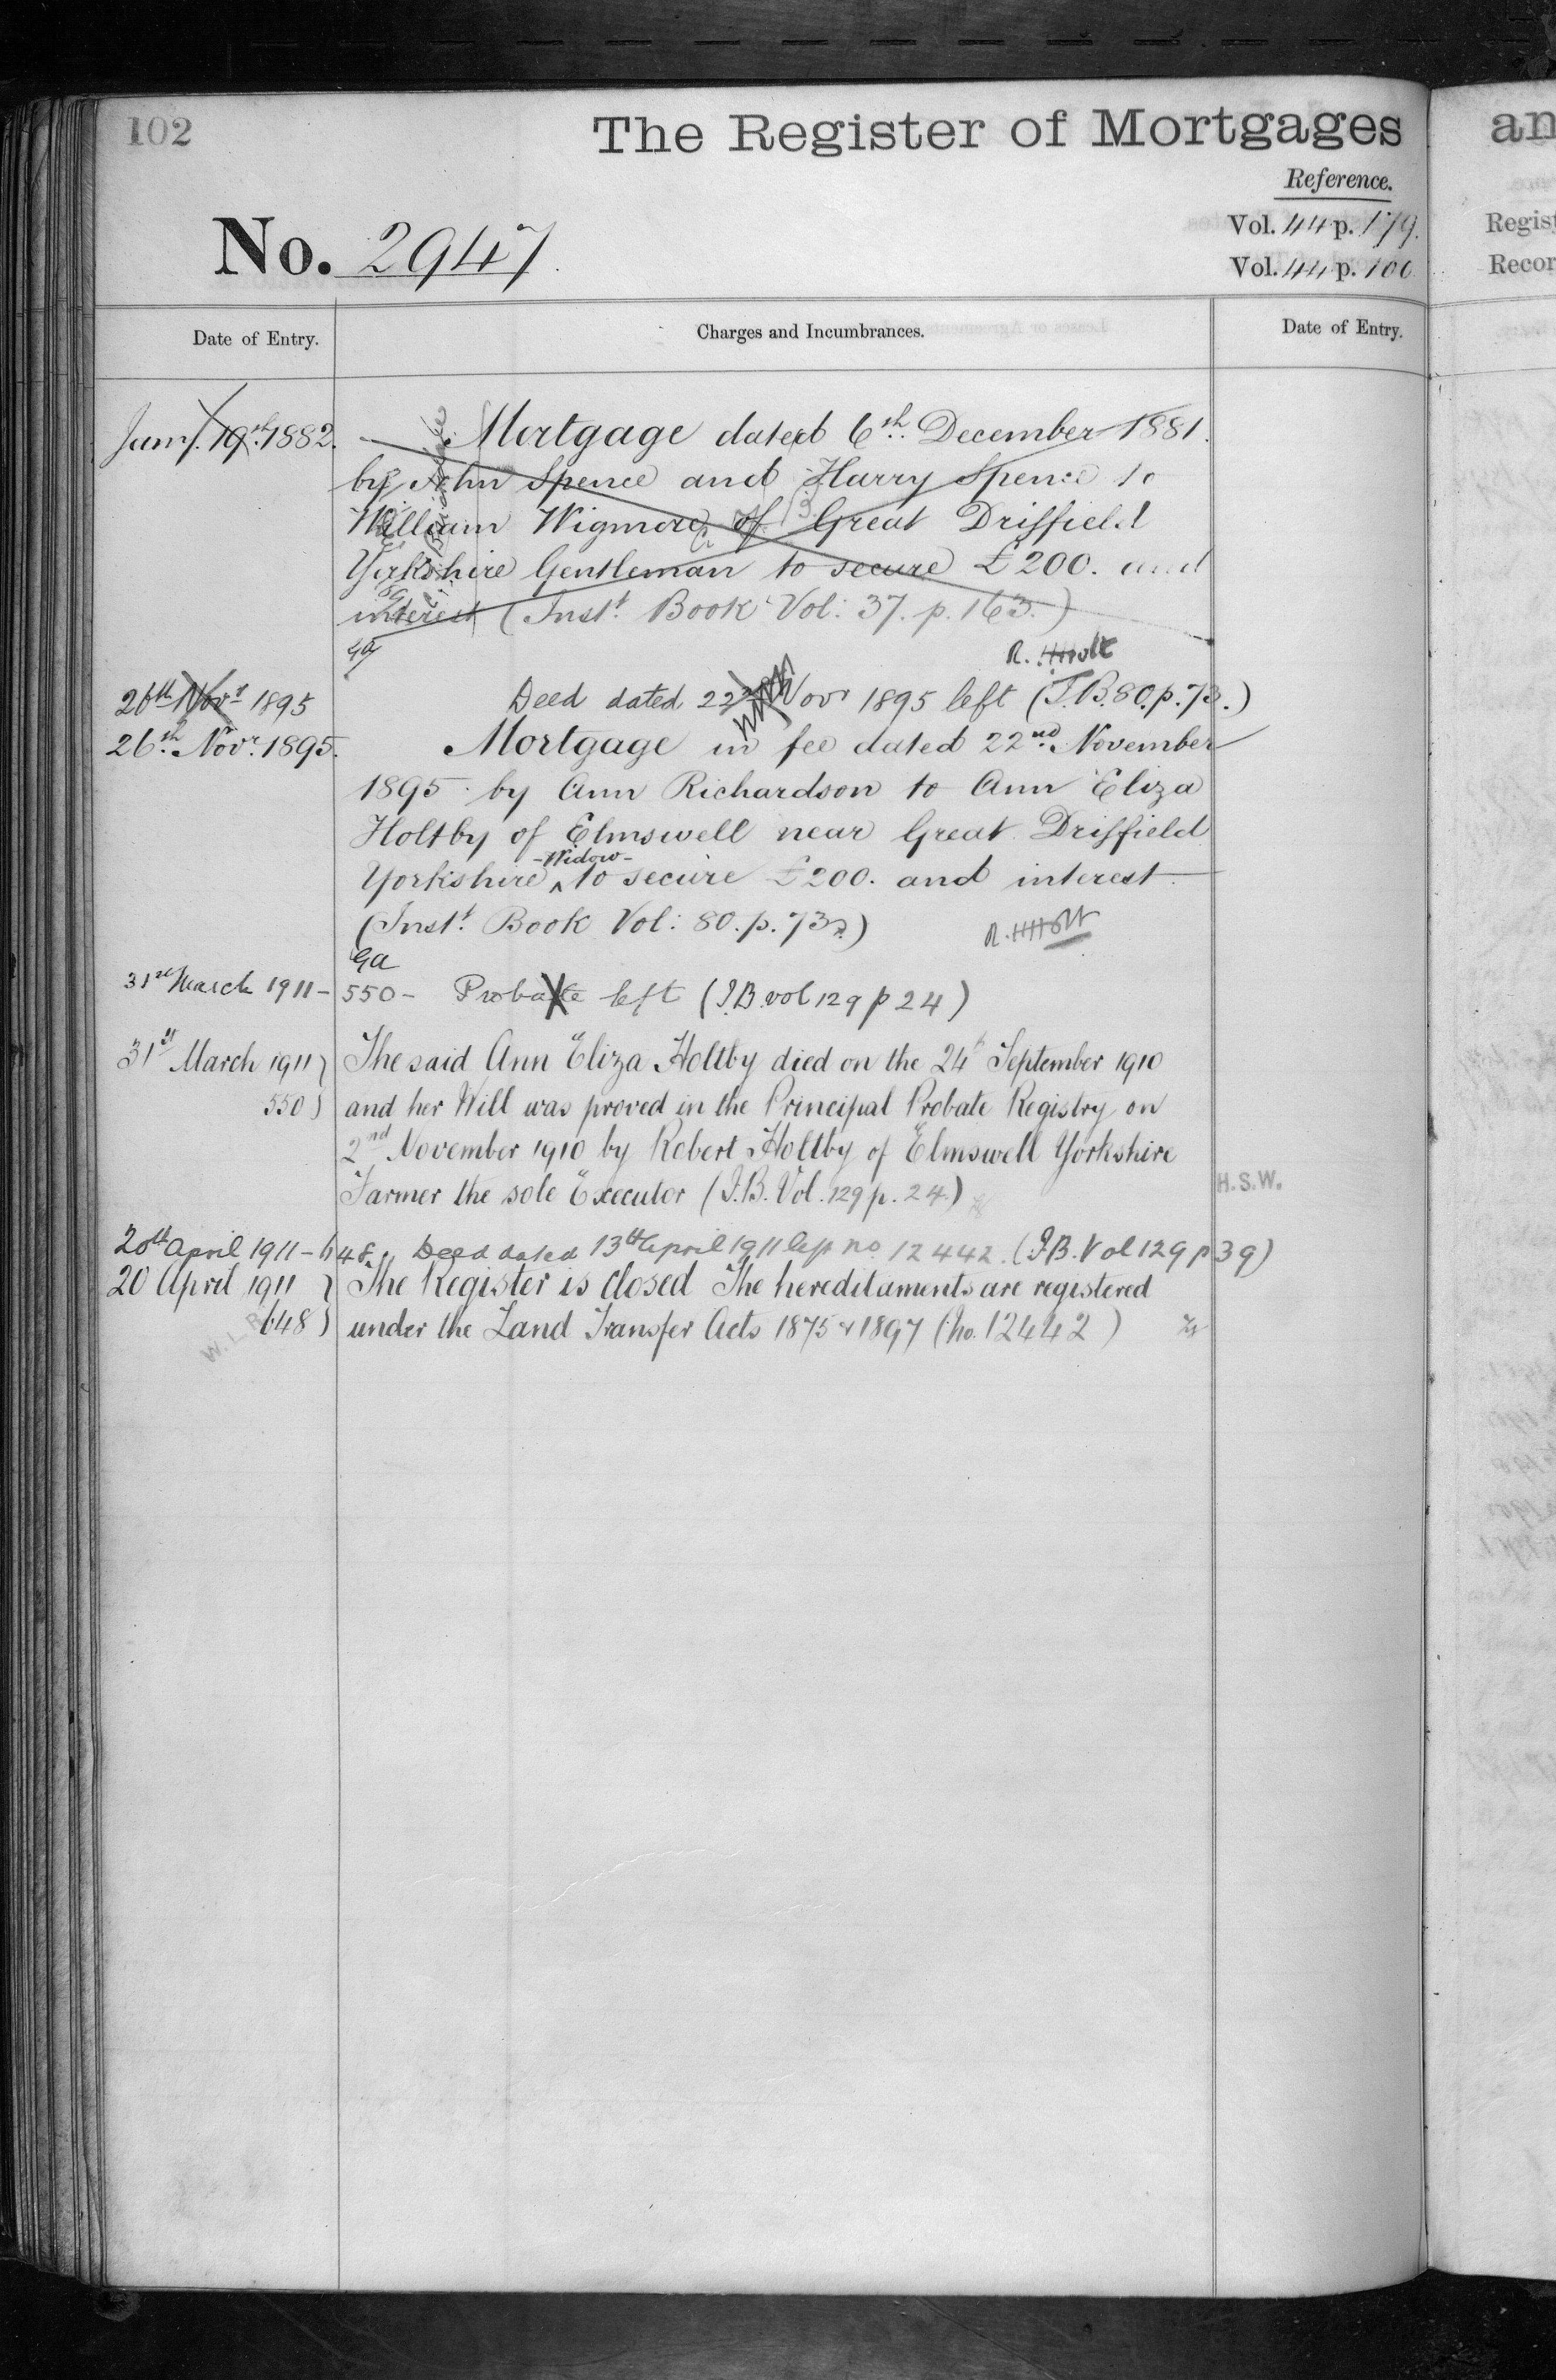 102
The Register of Mortgages
Reference.
No. 2947
Vol. 44 p. 179.
Vol. 44 p. 100
Date of Entry.
Charges and Incumbrances.
Date of Entry.
Jany. 19th 1882.
Mortgage dated 6th December 1881.
by John Spence and Harry Spence to
William Wigmore of Great Driffield
Yorkshire Gentleman to secure £200. and
interest (Inst. Book Vol: 37. p. 163.)
Ga
26th Novr 1895
Deed dated 22 Novr 1895 left (I.B. 80. p. 73.)
26th Novr. 1895.
Mortgage in fee dated 22nd November
1895 by Ann Richardson to Ann Eliza
Holtby of Elmswell near Great Driffield
Yorkshire -Widow- to secure £200. and interest
(Inst. Book Vol: 80. p. 73.)
Ga
31st March 1911 - 550 - Probate left (I.B. vol 129 p 24)
31st March 1911
550
The said Ann Eliza Holtby died on the 24th September 1910
and her Will was proved in the Principal Probate Registry on
2nd November 1910 by Robert Holtby of Elmswell Yorkshire
Farmer the sole Executor (I.B. Vol. 129 p. 24.)
H.S.W.
20th April 1911 - 648. Deed dated 13th April 1911 left no 12442. (I.B. Vol 129 p 39)
20 April 1911
648
The Register is closed The hereditaments are registered
under the Land Transfer Acts 1875 & 1897 (No. 12442)
an
Regist
Recor